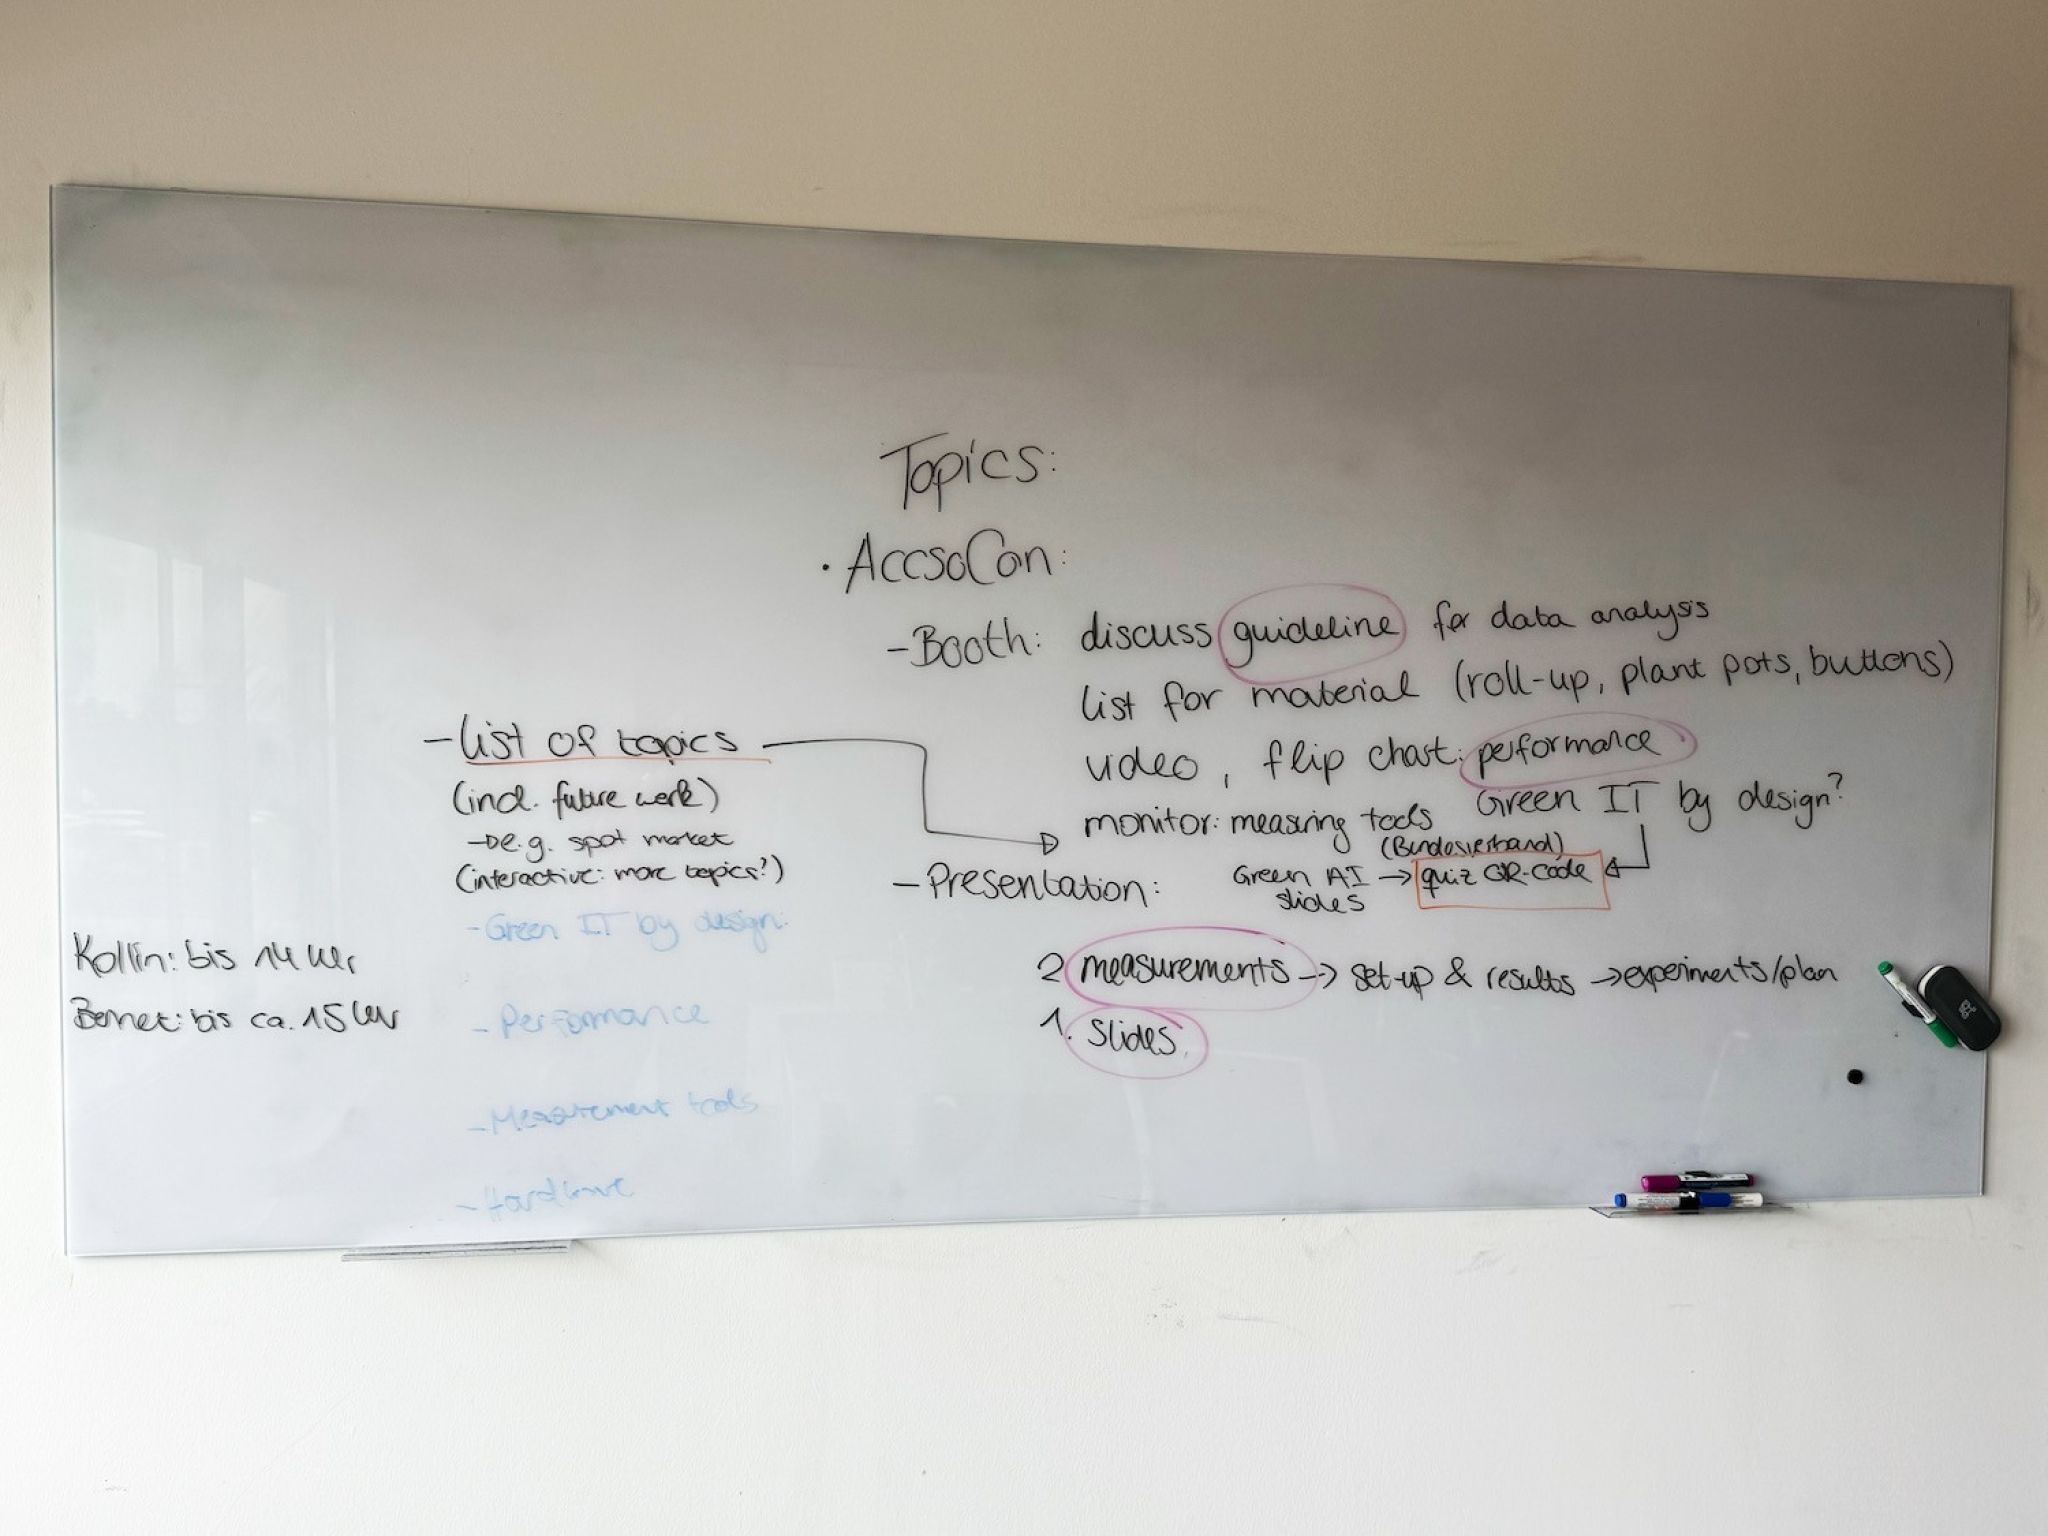 Topics:
· AccsoCon:
- Booth: discuss guideline for data analysis
list for material (roll-up, plant pots, buttons)
video, flip chart: performance
Green IT by design?
monitor: measuring tools
(Bundesverband)
- Presentation: Green AI slides → quiz QR-code
2 measurements → set-up & results → experiments/plan
1. slides
- list of topics
(incl. future work)
→ e.g. spot market
(interactive: more topics?)
- Green IT by design:
- Performance
- Measurement tools
- Hardware
Kollin: bis 14 Uhr
Bernet: bis ca. 15 Uhr